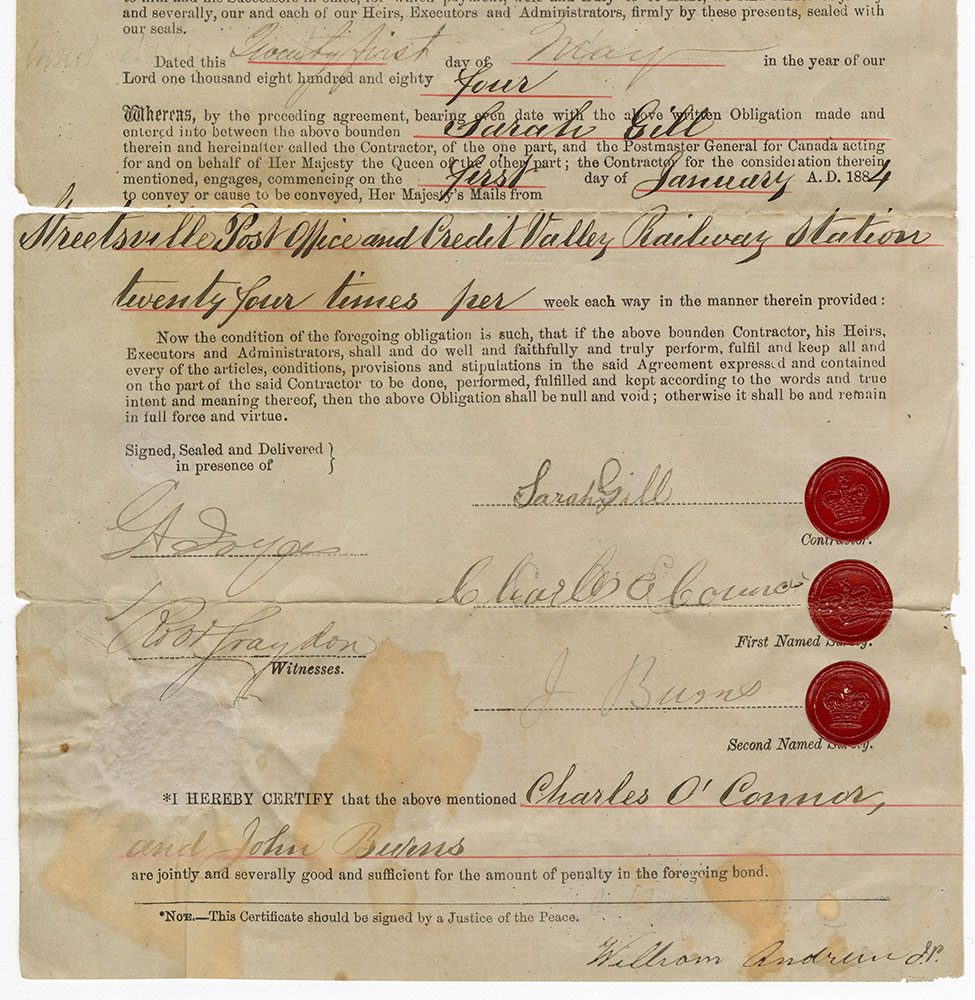 to him and his Successors in office, for which payment, well and truly to be made, we bind ourselves jointly
and severally, our and each of our Heirs, Executors and Administrators, firmly by these presents, sealed with
our seals.
Dated this Twenty first day of May in the year of our
Lord one thousand eight hundred and eighty four
Whereas, by the preceding agreement, bearing even date with the above written Obligation made and
entered into between the above bounden Sarah Gill
therein and hereinafter called the Contractor, of the one part, and the Postmaster General for Canada acting
for and on behalf of Her Majesty the Queen of the other part; the Contractor for the consideration therein
mentioned, engages, commencing on the first day of January A. D. 1884
to convey or cause to be conveyed, Her Majesty's Mails from
Streetsville Post Office and Credit Valley Railway Station
twenty four times per week each way in the manner therein provided:
Now the condition of the foregoing obligation is such, that if the above bounden Contractor, his Heirs,
Executors and Administrators, shall and do well and faithfully and truly perform, fulfil and keep all and
every of the articles, conditions, provisions and stipulations in the said Agreement expressed and contained
on the part of the said Contractor to be done, performed, fulfilled and kept according to the words and true
intent and meaning thereof, then the above Obligation shall be null and void; otherwise it shall be and remain
in full force and virtue.
Signed, Sealed and Delivered
in presence of
Sarah Gill
Contractor.
Charles
First Named Surety.
Robt Graydon
Witnesses.
J Burns
Second Named Surety.
*I HEREBY CERTIFY that the above mentioned Charles O'Connor,
and John Burns
are jointly and severally good and sufficient for the amount of penalty in the foregoing bond.
*NOTE.—This Certificate should be signed by a Justice of the Peace.
William Andrew J.P.